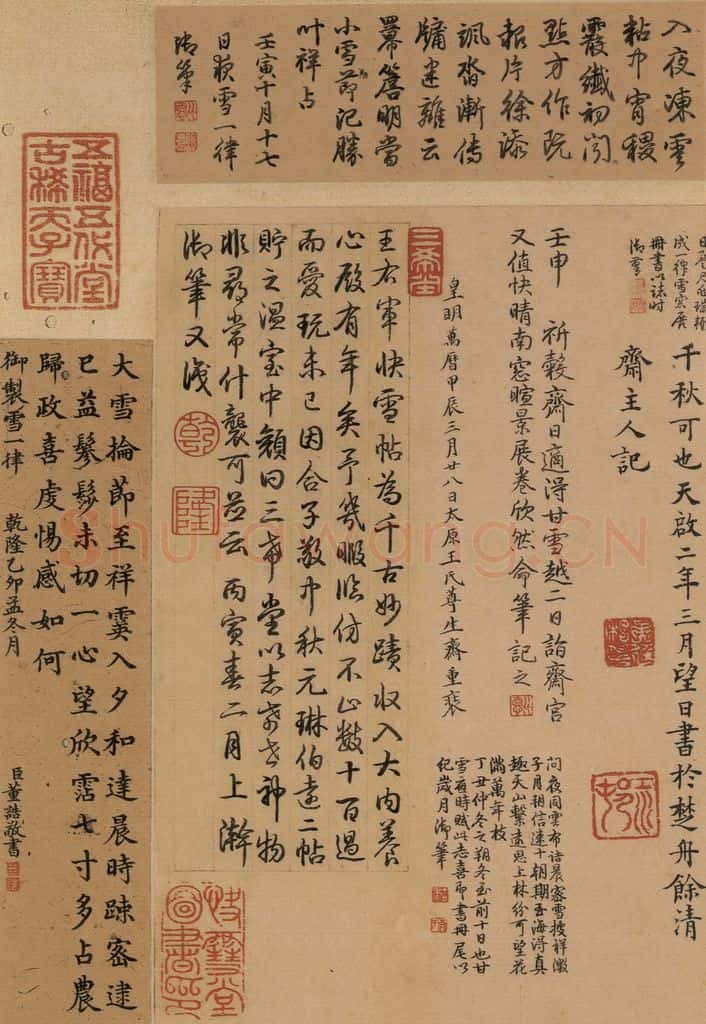 入夜凍雲
霰纖初闻
點方作
片徐添
漸傳
小雪節記勝
叶祥占
壬寅十月十七
日夜雪一律
御筆
成一律雪窓展
冊書以誌時
御筆
千秋可也天啟二年三月望日書於楚舟餘清
齋主人記
壬申 祈穀齋日適得甘雪越二日詣齋宮
又值快晴南窓暄景展卷欣然命筆記之
三希堂
皇明萬曆甲辰三月廿八日太原王氏尊生齋重裝
王右軍快雪帖為千古妙蹟收入大內養
心殿有年矣予幾暇臨仿不止數十百過
而愛玩未已因合子敬中秋元琳伯遠二帖
貯之溫室中顏曰三希堂以志希世神物
非尋常什襲可並云丙寅春二月上澣
御筆又識
乾
隆
同雲布 晨密雪接祥
子月朔信速十朝期至海得真
趣天山繫遠思上林紛可望花
滿萬年枝
丁丑仲冬之朔冬至前十日也甘
雪應時賦此志喜即書冊尾以
紀歲月御筆
五福五代堂
古稀天子寶
大雪掄節至祥霙入夕和達晨時疎密逮
已益鬖髿未切一心望欣霑七寸多占農
歸政喜虔惕感如何
御製雪一律 乾隆乙卯孟冬月
臣董誥敬書
Shufawang.CN